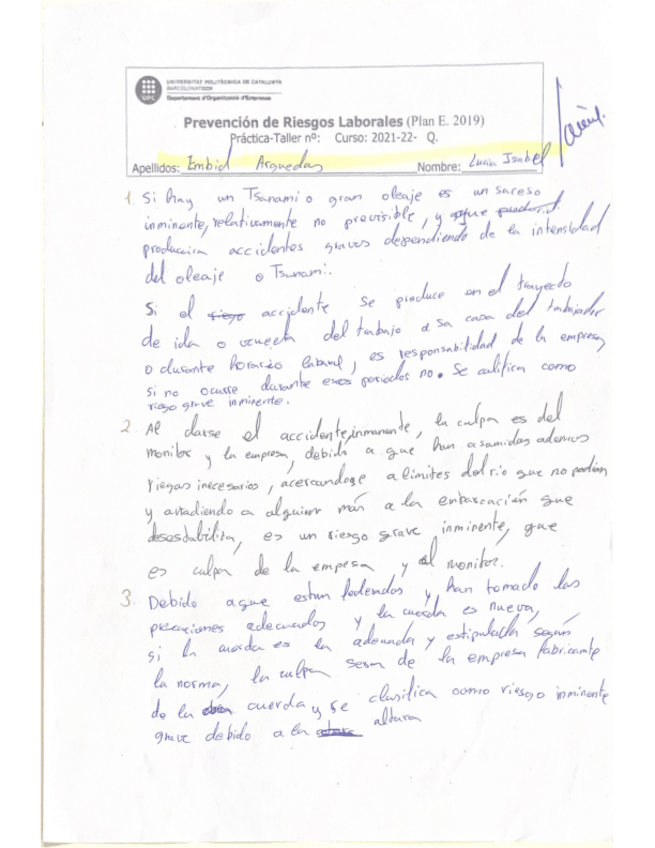 UNIVERSITAT POLITÈCNICA DE CATALUNYA
BARCELONATECH
Departament d'Organització d'Empreses
UPC
Prevención de Riesgos Laborales (Plan E. 2019)
Práctica-Taller nº: Curso: 2021-22- Q.
Apellidos: Embid Arguedas Nombre: Lucía Isabel
1. Si hay un Tsanami o gran oleaje es un suceso
inminente, relativamente no previsible, y
produccira accidentes graves dependiendo de la intensidad
del oleaje o Tsanami.
Si el riesgo accidente se produce en el trayecto
de ida o vuelta del trabajo a sa casa del trabajador
o durante horario laboral, es responsabilidad de la empresa,
si no ocurre durante esos periodos no. Se califica como
riesgo grave inminente.
2. Al darse el accidente inmanente, la culpa es del
monitor y la empresa, debido a que han asamidos ademas
riesgos inecesarios, acercandose a limites del rio que no podian
y añadiendo a alguien más a la embarcación que
desestabiliza, es un riesgo grave inminente, que
es culpa de la empesa y el monitor.
3. Debido aque estan federados y han tomado las
precauciones adecuados y la cuerda es nueva,
si la cuerda es la adecuada y estipulada según
la norma, la culpa sera de la empresa fabricante
de la cuerda y se clasifica como riesgo inminente
grave debido a la altura